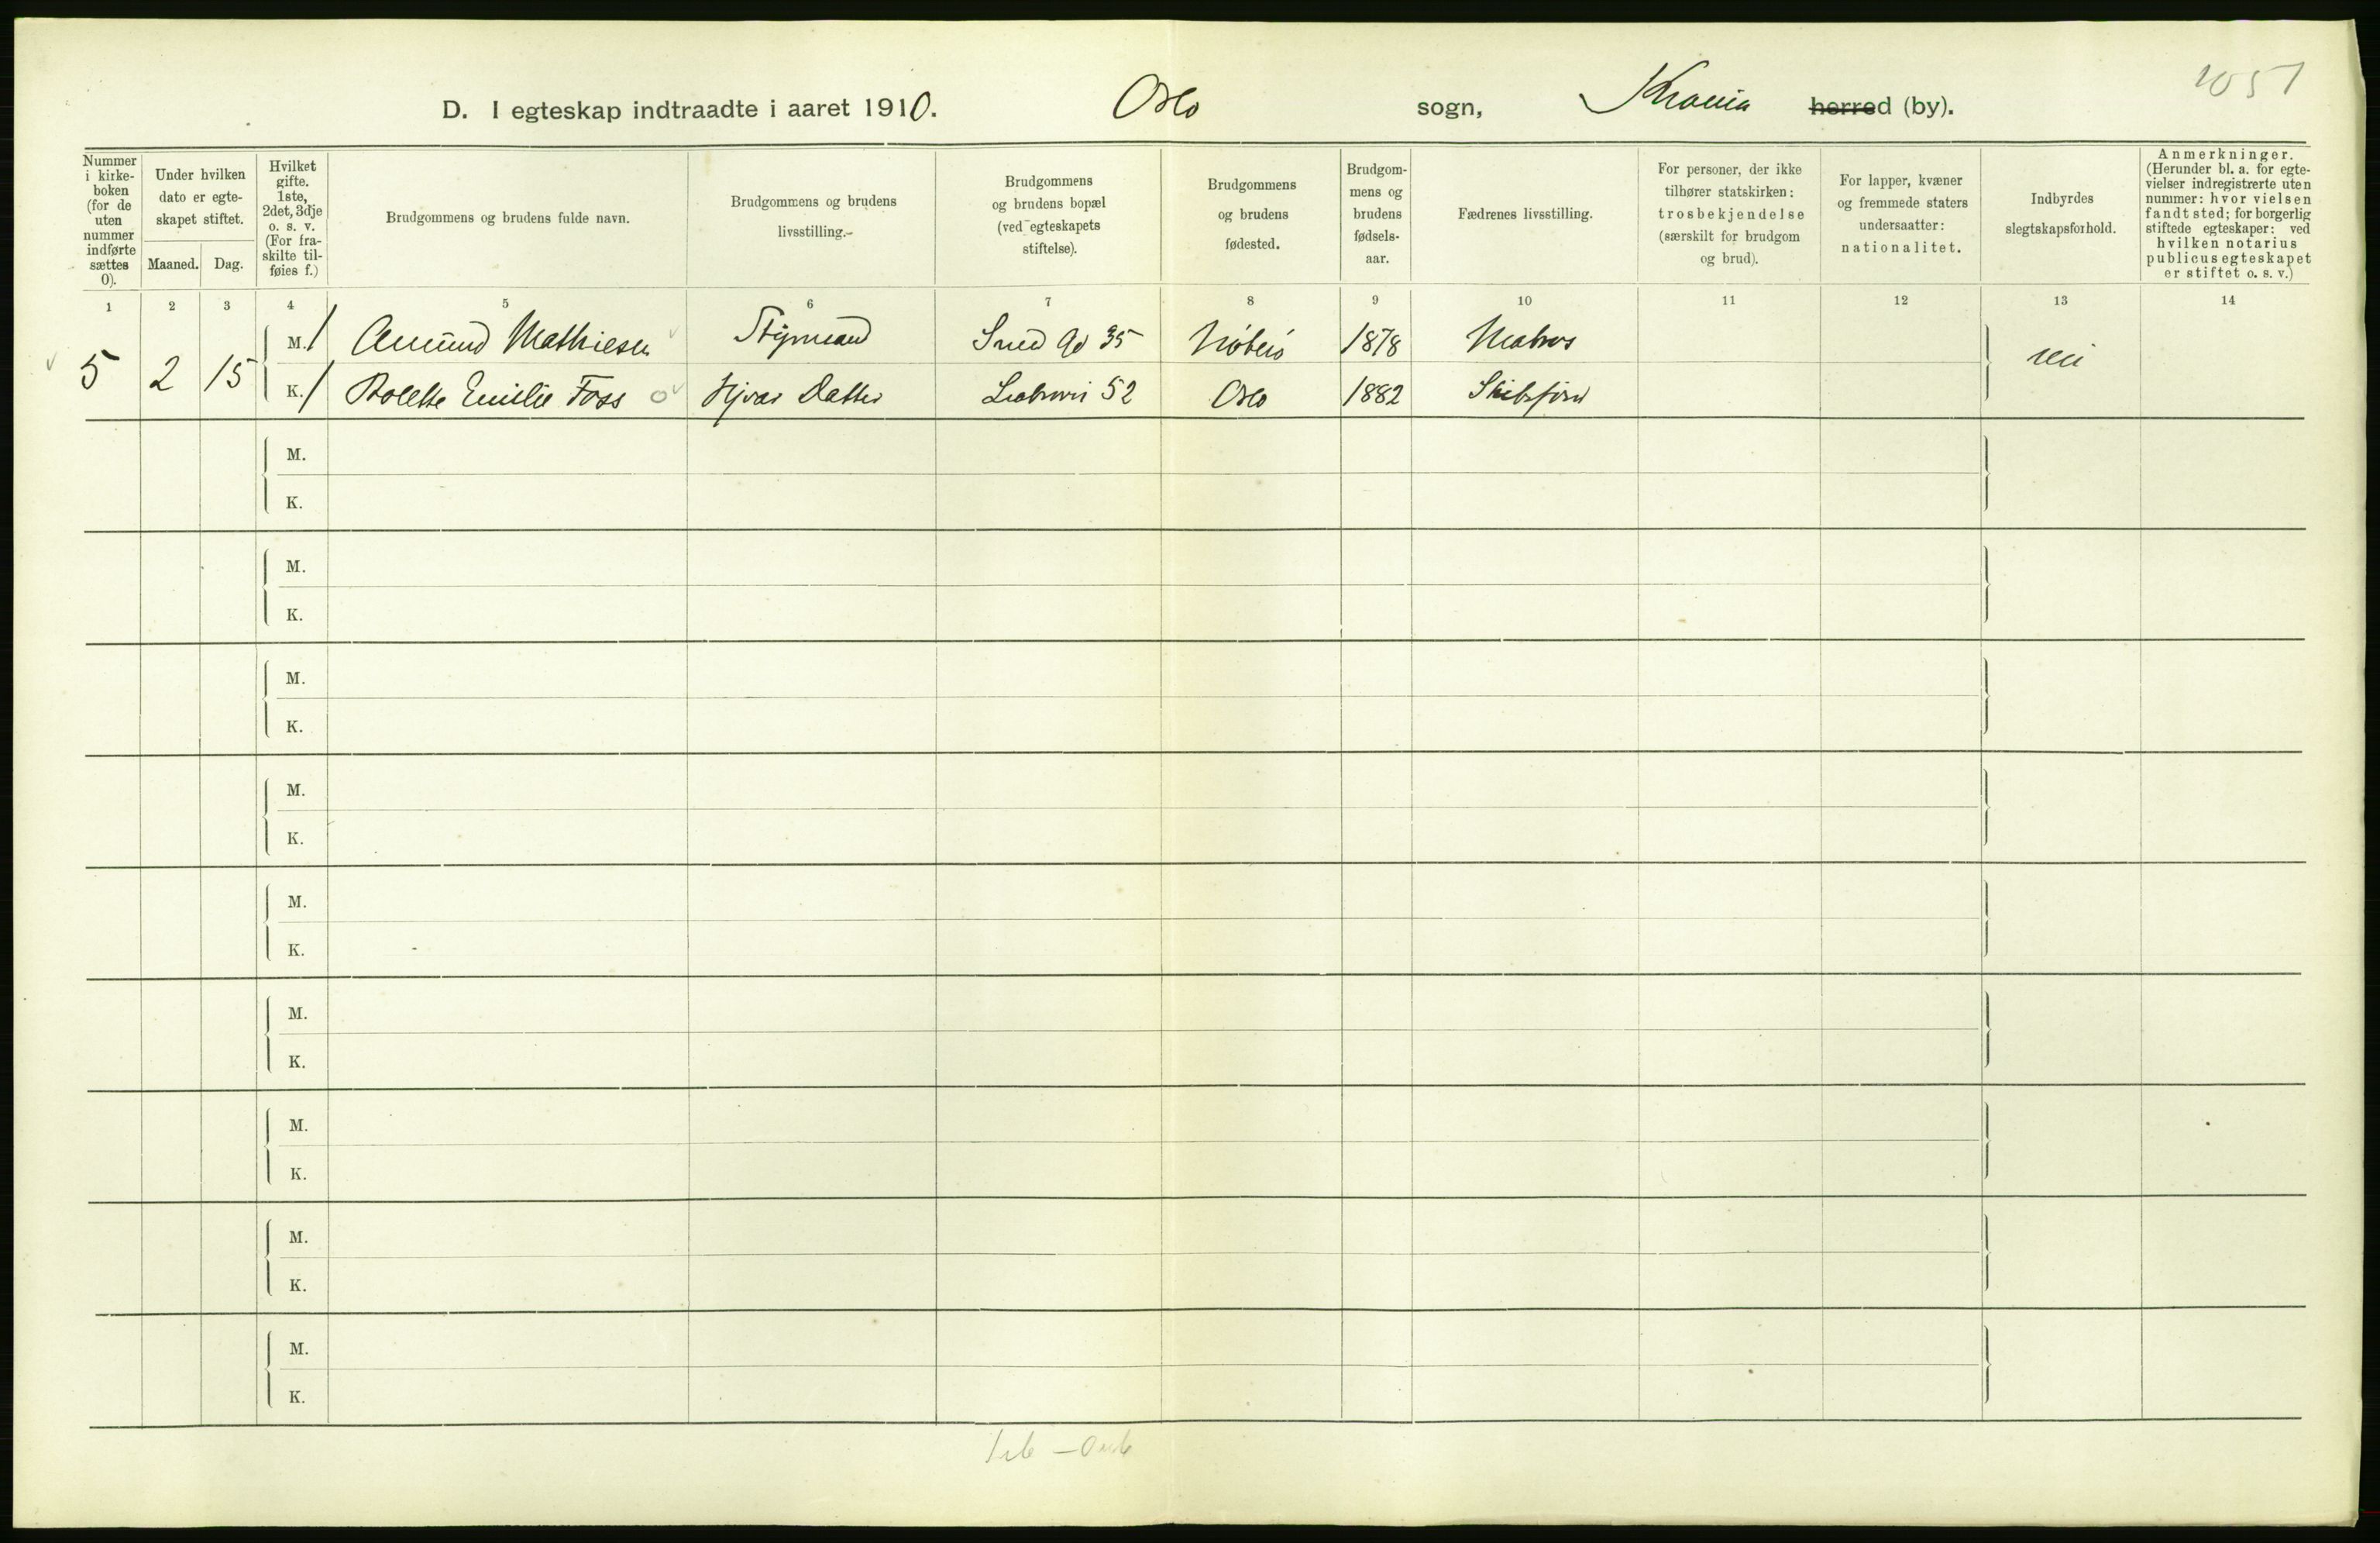 1051
D. I egteskap indtraadte i aaret 1910. Oslo sogn, Krania herred (by).
Nummer i kirke- boken (for de uten nummer indførte sættes 0).
Under hvilken dato er egte- skapet stiftet.
Maaned. Dag.
Hvilket gifte. 1ste, 2det, 3dje o. s. v. (For fra- skilte til- føies f.)
Brudgommens og brudens fulde navn.
Brudgommens og brudens livsstilling.
Brudgommens og brudens bopæl (ved egteskapets stiftelse).
Brudgommens og brudens fødested.
Brudgom- mens og brudens fødsels- aar.
Fædrenes livsstilling.
For personer, der ikke tilhører statskirken: trosbekjendelse (særskilt for brudgom og brud).
For lapper, kvæner og fremmede staters undersaatter: nationalitet.
Indbyrdes slegtskapsforhold.
Anmerkninger. (Herunder bl. a. for egte- vielser indregistrerte uten nummer: hvor vielsen fandt sted; for borgerlig stiftede egteskaper: ved hvilken notarius publicus egteskapet er stiftet o. s. v.)
1 2 3 4 5 6 7 8 9 10 11 12 13 14
5 2 15 M. / Amund Mathiesen Styrmand 35 1878 Matros nei
K. / Bolette Emilie Foss Hjvær Datter 52 Oslo 1882 Skibsfører
M.
K.
M.
K.
M.
K.
M.
K.
M.
K.
M.
K.
M.
K.
M.
K.
M.
K.